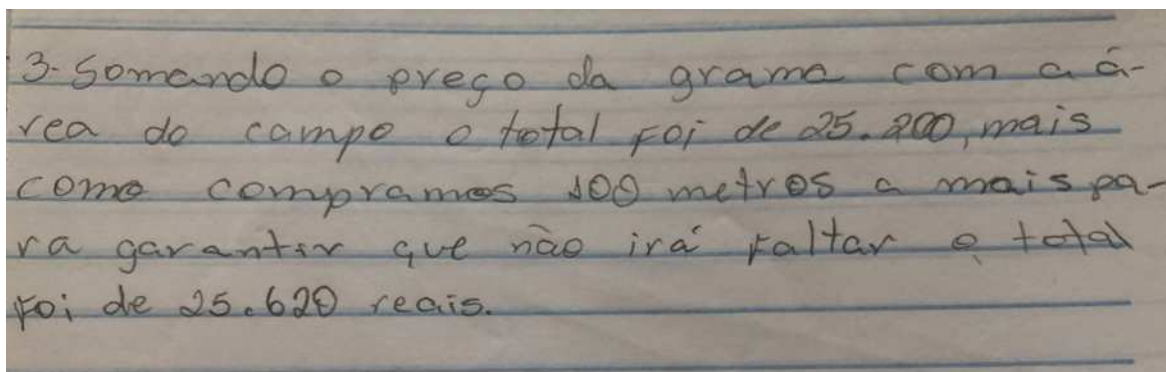 3- Somando o preço da grama com a á-
rea do campo o total foi de 25.200, mais
como compramos 100 metros a mais pa-
ra garantir que não irá faltar o total
foi de 25.620 reais.